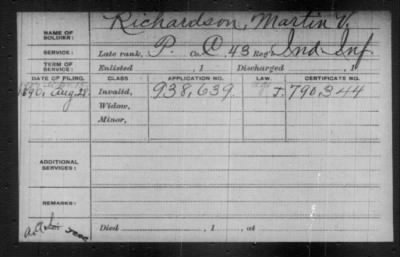 Richardson, Martin V.
NAME OF SOLDIER:
SERVICE: Late rank, P. Co. C, 43 Reg't Ind Inf
TERM OF SERVICE: Enlisted , 1 Discharged , 1
DATE OF FILING. CLASS APPLICATION NO. LAW. CERTIFICATE NO.
1890, Aug. 28 Invalid, 938,639 J. 790,344
Widow,
Minor,
ADDITIONAL SERVICES:
REMARKS:
Died , 1 , at